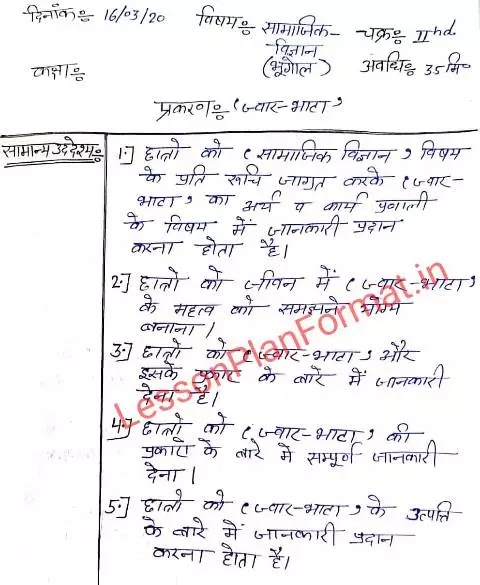 दिनांक:- 16/03/20 विषय:- सामाजिक- चक्र:- IInd.
विज्ञान
कक्षा:- (भूगोल) अवधि:- 35 मि०
प्रकरण:- ‘ज्वार-भाटा’
सामान्य उद्देश्य:-
1.] छात्रो को ‘सामाजिक विज्ञान’ विषय
के प्रति रूचि जाग्रत करके ‘ज्वार-
भाटा’ का अर्थ व कार्य प्रणाली
के विषय में जानकारी प्रदान
करना होता है।
2.] छात्रो को जीवन में ‘ज्वार-भाटा’
के महत्व को समझने योग्य
बनाना।
3.] छात्रो को ‘ज्वार-भाटा’ और
इसके प्रकार के बारे में जानकारी
देना है।
4.] छात्रो को ‘ज्वार-भाटा’ की
प्रकारो के बारे में सम्पूर्ण जानकारी
देना।
5.] छात्रो को ‘ज्वार-भाटा’ के उत्पत्ति
के बारे में जानकारी प्रदान
करना होता है।
LessonPlanFormat.in